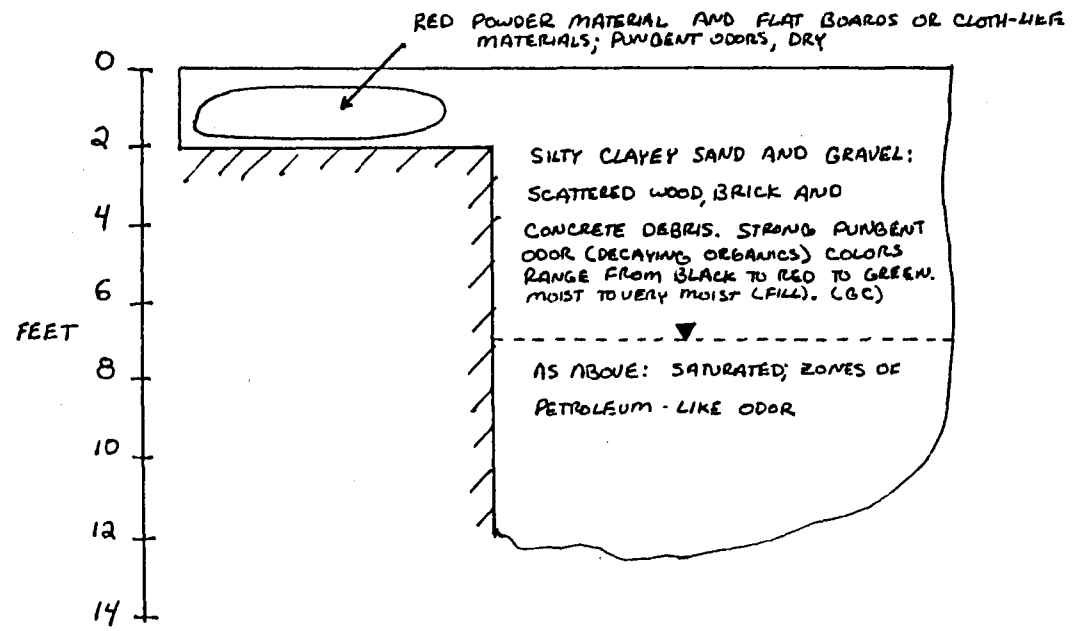 RED POWDER MATERIAL AND FLAT BOARDS OR CLOTH-LIKE
MATERIALS; PUNGENT ODORS, DRY
0
2
4
6
FEET
8
10
12
14
SILTY CLAYEY SAND AND GRAVEL:
SCATTERED WOOD, BRICK AND
CONCRETE DEBRIS. STRONG PUNGENT
ODOR (DECAYING ORGANICS) COLORS
RANGE FROM BLACK TO RED TO GREEN.
MOIST TO VERY MOIST (FILL). (GC)
AS ABOVE: SATURATED; ZONES OF
PETROLEUM-LIKE ODOR